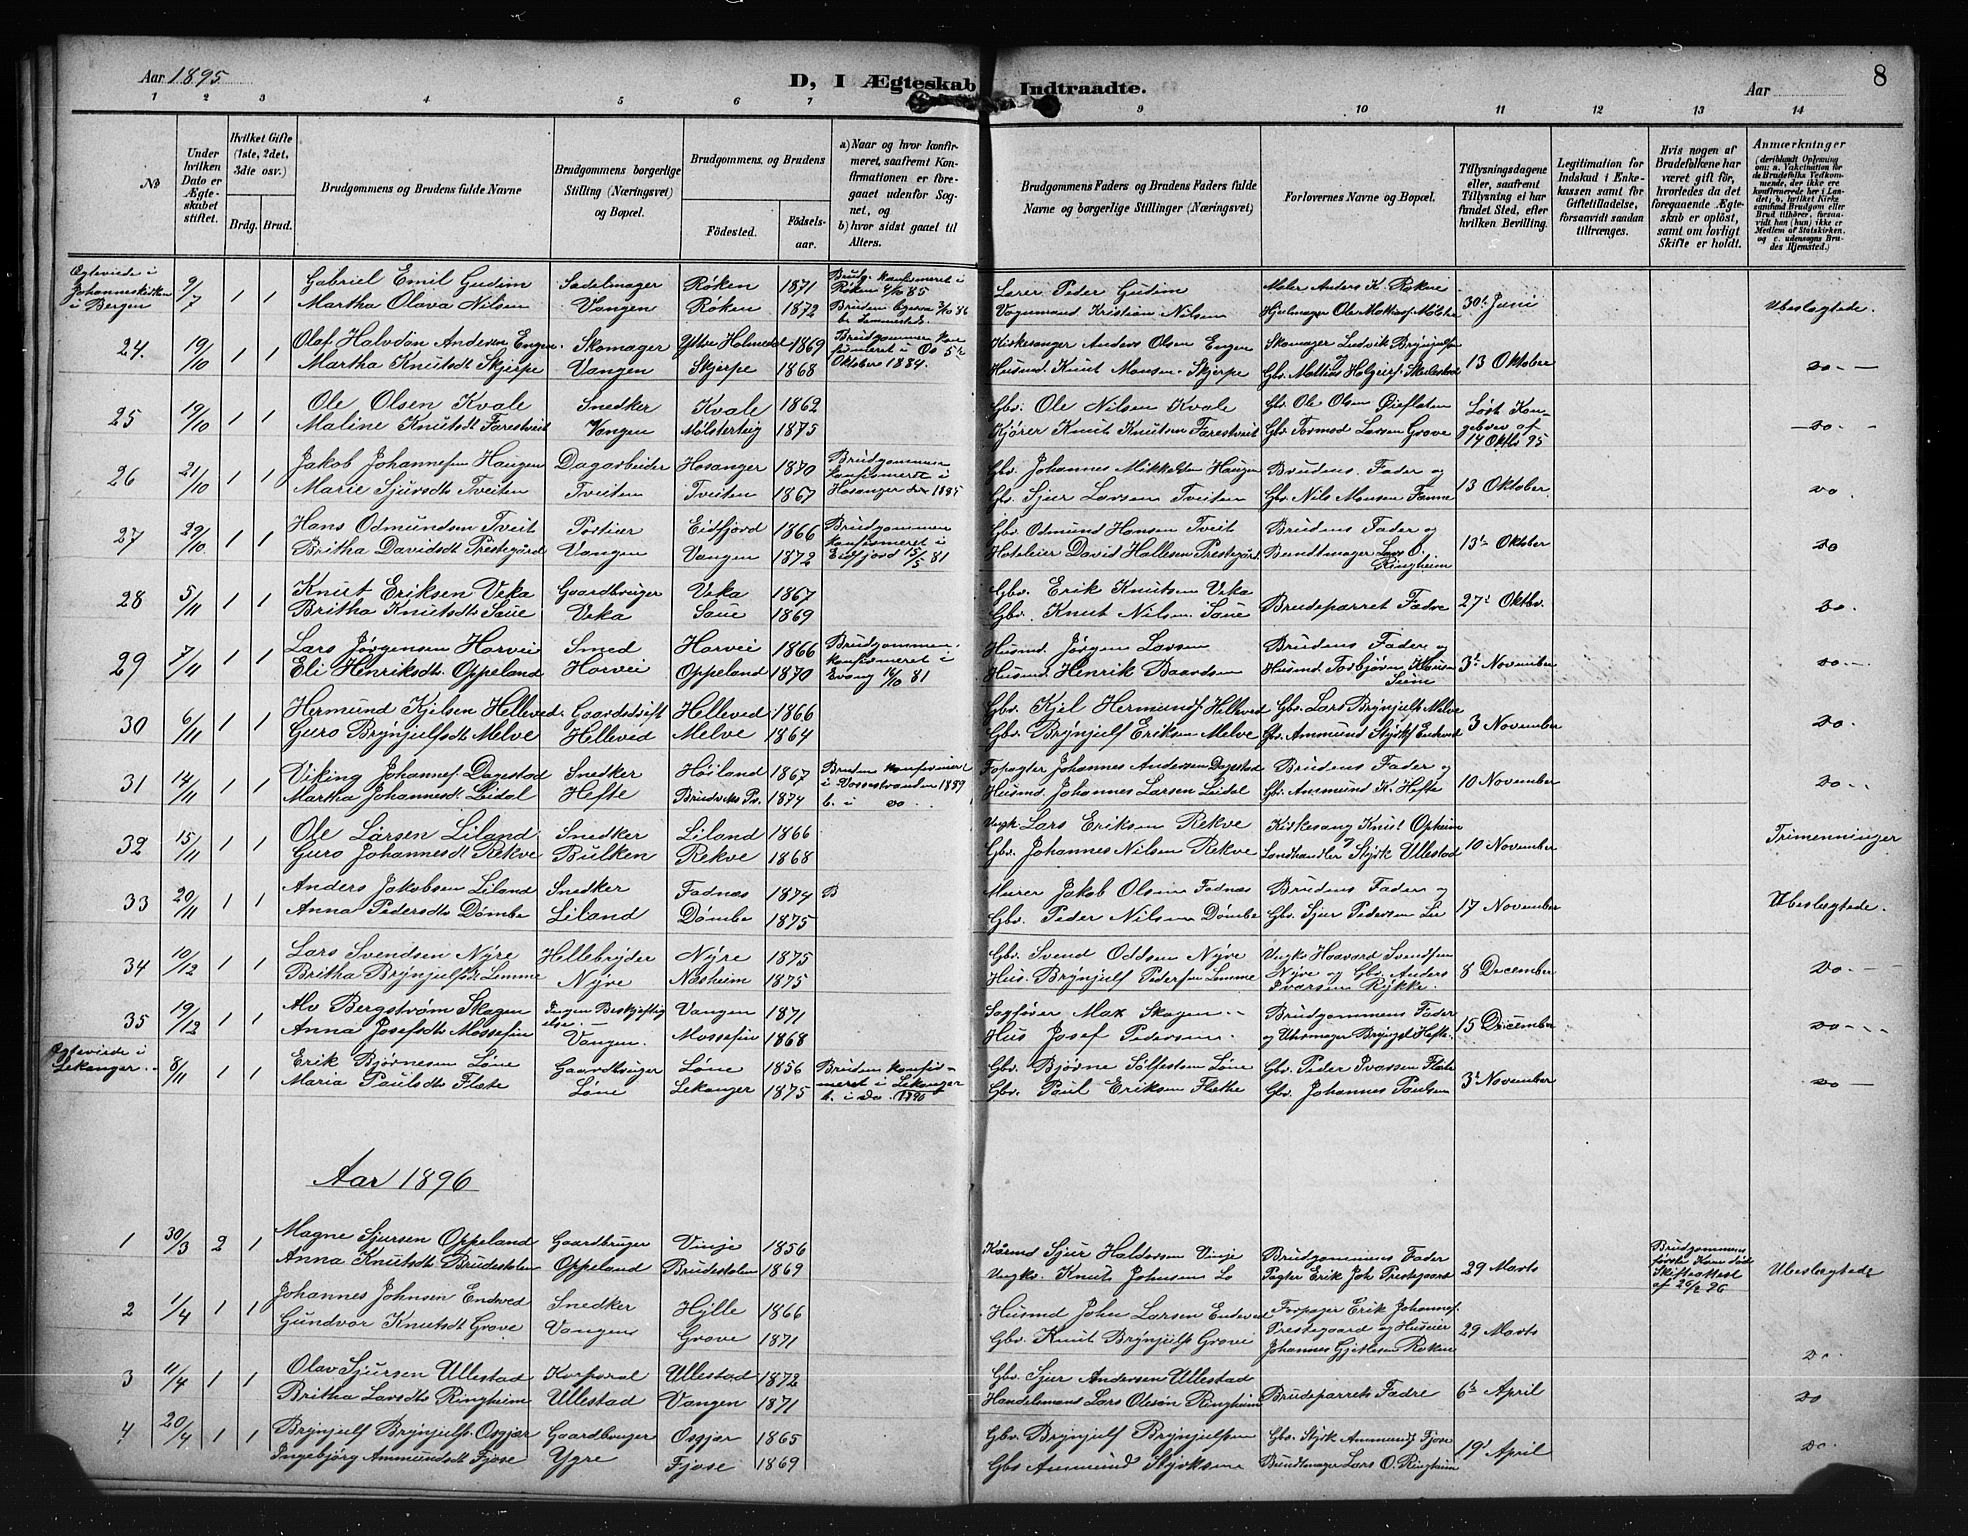 Aar 1895.
D, I Ægteskab Indtraadte.
Aar
8
1 2 3 4 5 6 7 9 10 11 12 13 14
No
Under hvilken Dato er Ægteskabet stiftet.
Hvilket Gifte (1ste, 2det, 3die osv.)
Brdg. Brud.
Brudgommens og Brudens fulde Navne
Brudgommens borgerlige Stilling (Næringsvei) og Bopæl.
Brudgommens og Brudens
Fødested.
Fødselsaar.
a) Naar og hvor konfirmeret, saafremt Konfirmationen er foregaaet udenfor Sognet, og
b) hvor sidst gaaet til Alters.
Brudgommens Faders og Brudens Faders fulde Navne og borgerlige Stillinger (Næringsvei)
Forlovernes Navne og Bopæl.
Tillysningsdagene eller, saafremt Tillysning ei har fundet Sted, efter hvilken Bevilling.
Legitimation for Indskud i Enkekassen samt for Giftetilladelse, forsaavidt saadan tiltrænges.
Hvis nogen af Brudefolkene har været gift før, hvorledes da det foregaaende Ægteskab er opløst, samt om lovligt Skifte er holdt.
Anmærkninger
(deriblandt Oplysning om: a. Vakcination for de Brudefolks Vedkommende, der ikke ere konfirmerede her i Landet; b. hvilket Kirkesamfund Brudgom eller Brud tilhører, forsaavidt han (hun) ikke er Medlem af Statskirken, og c. udensogns Brudes Hjemsted.)
Ægteviede i Johanneskirken i Bergen 9/7 1 1 Gabriel Emil Gudim Sadelmager Røken 1871 Brudg. konfirmeret i Røken 4/10 85 Lærer Peder Gudim Maler Anders K. Røkne 30t Juni Ubeslægtede.
Martha Olava Nilsen Vangen Røken 1872 Vognmand Kristian Nilsen Hjulmager Ole Mathiasf. Mølster
24. 19/10 1 1 Olaf Halvdan Andersen Engen Skomager Ytre Holmedal 1869 Brudgommen konfirmeret i Os 5te Oktober 1884. Kirkesanger Anders Olsen Engen Skomager Ludvik Brynjulfsen 13 Oktober Do —
Martha Knutsdt Skjerpe Vangen Skjerpe 1868 Husmd. Knut Monsen Skjerpe Gbr. Mathias Holgersf. Skulestad
25 19/10 1 1 Ole Olsen Kvale Snedker Kvale 1862 Gbr. Ole Nilsen Kvale Gbr Ole Olsen Gjeflaten Løst Kongebrev af 14 Oktb 95 — Do —
Maline Knutsdt Farestveit Vangen Mølsterteig 1875 Kjører Knut Knutsen Farestveit Gbr Tormod Larsen Grove
26 21/10 1 1 Jakob Johannesen Haugen Dagarbeider Hosanger 1870 Brudgommen konfirmeret i Hosanger den 1885 Gbr. Johannes Mikkelsen Haugen Brudens Fader og 13 Oktober. Do.
Marie Sjursdt Tveiten Tveiten Tveiten 1867 Gbr. Sjur Larsen Tveiten Gbr. Nils Monsen Fenne
27 29/10 1 1 Hans Odmundsen Tveit Portier Eidfjord 1866 Brudgommen konfirmeret i Eidfjord 15/5 81 Gbr. Odmund Hansen Tveit Brudens Fader og 13t Oktober Do
Britha Davidsdt Prestegård Vangen Vangen 1872 Hoteleier David Hallesen Prestegård Bundtmager Lars O. Ringheim
28 5/11 1 1 Knut Eriksen Veka Gaardbruger Veka 1867 Gbr. Erik Knutsen Veka Brudeparret Fadre 27t Oktbr. Do.
Britha Knutsdt Saue Veka Saue 1869 Gbr. Knut Nilsen Saue
29 7/11 1 1 Lars Jørgensen Horvei Smed Horvei 1866 Brudgommen konfirmeret i Evang 16/10 81 Husmd. Jørgen Larsen Brudens Fader og 3t November Do —
Eli Henriksdt. Oppeland Horvei Oppeland 1870 Husmd. Henrik Baardsen Husmd Torbjørn Klausen Seim
30 6/11 1 1 Hermund Kjelsen Helleved Gaardsdrift Helleved 1866 Gbr. Kjel Hermundf Helleved Gbr. Lars Brynjulfs Melve 3 November Do.
Guro Brynjulfsdt Melve Helleved Melve 1864 Gbr. Brynjulf Eriksen Melve Gbr. Ammund Styrkf Endeved
31 14/11 1 1 Viking Johannesf. Dagestad Snedker Høiland 1867 Bruden konfirmeret i Vossestranden 1889 b. i Do. Forpagter Johannes Andersen Dagestad Brudens Fader og 10 November Do.
Martha Johannesdt. Leidal Hefte Brudviks Pr. 1874 Husmd. Johannes Larsen Leidal Gbr. Ammund K. Hefte
32 15/11 1 1 Ole Larsen Liland Snedker Liland 1866 Ungk Lars Eriksen Rekve Kirkesang Knut Opheim 10 November Trimenninger
Guro Johannesdt Rekve Bulken Rekve 1868 Gbr. Johannes Nilsen Rekve Landhandler Styrk Ullestad
33 20/11 1 1 Anders Jakobsen Liland Snedker Fadnæs 1874 B Murer Jakob Olsen Fadnæs Brudens Fader og 17 November Ubeslægtede.
Anna Pedersdt Dømbe Liland Dømbe 1875 Gbr. Peder Nilsen Dømbe Gbr. Sjur Pedersen Lie
34 10/12 1 1 Lars Svendsen Nyre Hellebryder Nyre 1875 Gbr. Svend Oddsen Nyre Ungks Haavard Svendsen Nyre og Gbr. Anders Ivarsen Rykke. 8 December Do. —
Britha Brynjulfsdt Lemme Nyre Næsheim 1875 Hus. Brynjulf Pedersen Lemme
35 19/12 1 1 Alv Bergstrøm Skagen Ingen Beskjeftigelse. Vangen 1871 Sagfører Max Skagen Brudgommens Fader 15 December Do —
Anna Josefsdt Mossefin Vangen. Mossefin 1868 Hus Josef Pedersen og Uhrmager Brynjel Hefte.
Ægteviede i Lekanger. 8/11 1 1 Erik Bjørnesen Løne Gaardbruger Løne 1856 Bruden konfirmeret i Lekanger b. i Do. 1890 Gbr. Bjørne Sølfestsen Løne Gbr. Peder Ivarsen Flæte 3t November Do —
Maria Paulsdt Flæte Løne Lekanger 1875 Gbr. Paul Eriksen Flæthe Gbr. Johannes Paulsen
Aar 1896
1 30/3 2 1 Magne Sjursen Oppeland Gaardbruger Vinje 1856 Kaarmd Sjur Haldorsen Vinje Brudgommens Fader 29 Marts Brudgommens første Kone død Skifteattest af 26/2 96 Ubeslægtede
Anna Knutsdt Brudestolen Oppeland Brudestolen 1869 Ungks. Knut Johnsen Lo Pagter Erik Joh Prestegaard
2 1/4 1 1 Johannes Johnsen Endeved Snedker Hylle 1866 Husmd John Larsen Endeved Forpagter Erik Johannesf. Prestegaard og Huseier Johannes Gjetlesen Røkne 29 Marts Do.
Gundvor Knutsdt Grove Vangen Grove 1871 Gbr. Knut Brynjulfs Grove
3 11/4 1 1 Olav Sjursen Ullestad Korporal Ullestad 1872 Gbr. Sjur Andersen Ullestad Brudeparrets Fadre 6te April Do
Britha Larsdt Ringheim Ullestad Vangen 1871 Handelsmand Lars Olesøn Ringheim
4 20/4 1 1 Brynjulf Brynjulfs. Osgjær Gaardbruger Osgjær 1865 Gbr. Brynjulf Brynjulfsen Gbr. Styrk Ammundf Fjose 19t April Do.
Ingebjørg Ammundsdt Fjose Ygre Fjose 1869 Gbr Ammund Styrksen Bundtmager Lars O. Ringheim